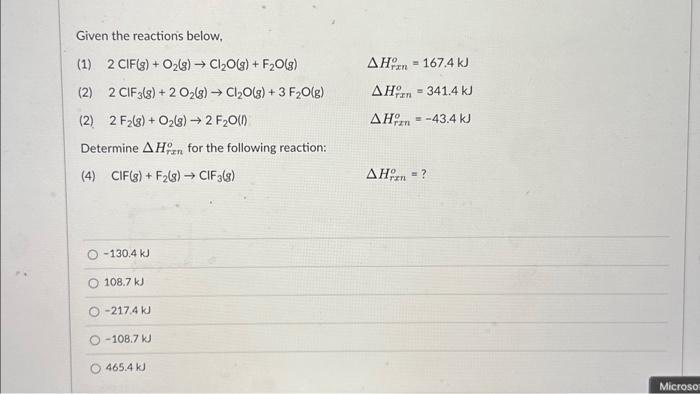 Given the reactions below,
(1) 2 ClF(g) + O₂(g) → Cl₂O(g) + F₂O(g) ΔH°rxn = 167.4 kJ
(2) 2 ClF₃(g) + 2 O₂(g) → Cl₂O(g) + 3 F₂O(g) ΔH°rxn = 341.4 kJ
(2) 2 F₂(g) + O₂(g) → 2 F₂O(l) ΔH°rxn = -43.4 kJ
Determine ΔH°rxn for the following reaction:
(4) ClF(g) + F₂(g) → ClF₃(g) ΔH°rxn = ?
-130.4 kJ
108.7 kJ
-217.4 kJ
-108.7 kJ
465.4 kJ